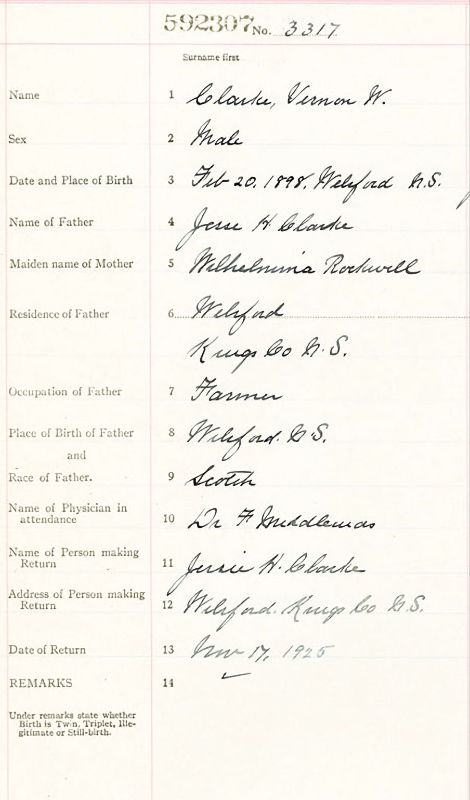 592307 No. 3317
Surname first
Name 1 Clarke, Vernon W.
Sex 2 Male
Date and Place of Birth 3 Feb 20, 1898, Welsford N.S.
Name of Father 4 Jesse H Clarke
Maiden name of Mother 5 Wilhelmina Rockwell
Residence of Father 6 Welsford
Kings Co N.S.
Occupation of Father 7 Farmer
Place of Birth of Father 8 Welsford. N.S.
and
Race of Father. 9 Scotch
Name of Physician in
attendance 10 Dr F Middlemas
Name of Person making
Return 11 Jessie H. Clarke
Address of Person making
Return 12 Welsford. Kings Co N.S.
Date of Return 13 Nov 17, 1925
REMARKS 14
Under remarks state whether
Birth is Twin, Triplet, Ille-
gitimate or Still-birth.